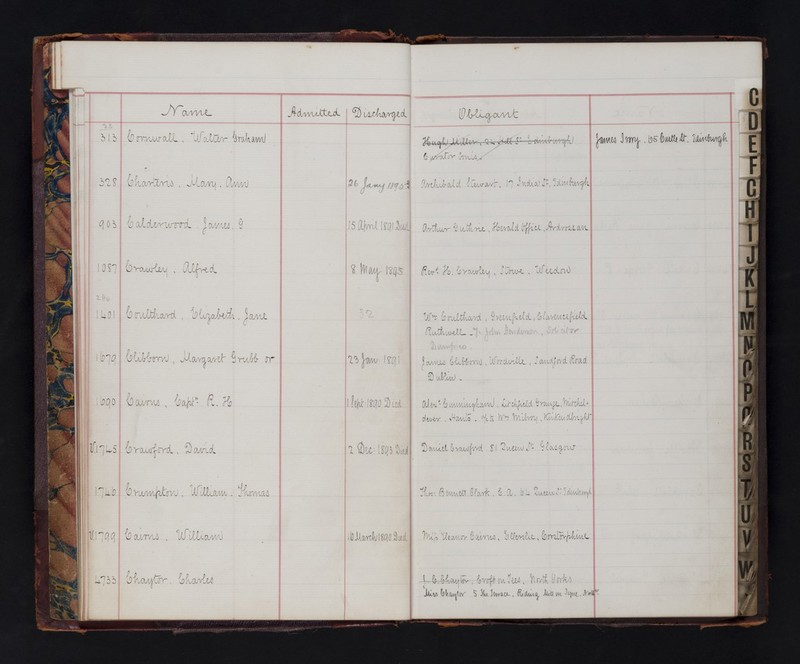 Name Admitted Discharged Obligant
313 Cornwall. Walter Graham Hugh Miller, Edinburgh James Ivory. Edinburgh
Curator bonis.
328 Charteris. Mary. Ann 26 Jany 1890 Archibald Stewart. 17 India St. Edinburgh
903 Calderwood. James. G 15 April 1891 Died Arthur Guthrie. Herald Office. Ardrossan
1087 Crawley. Alfred 8 May 1895 Revd. H. Crawley. Stowe. Weedon
1401 Coulthard. Elizabeth. Jane Wm Coulthard. Greenfield. Clarencefield
Ruthwell
Dumfries
1679 Clibborn. Margaret Grubb or 23 Jan 1891 James Clibborn. Woodville. Sandford Road
Dublin.
1690 Cairns. Captn. R. H 1 Sept 1890 Died Alexr Cunningham. Grange. Michel-
dever. Hants. Wm Milroy. Kirkcudbright
1745 Crawford. David 2 Dec 1893 Died Daniel Crawford 81 Queen St. Glasgow
1746 Crempton. William. Thomas Thos. Bennett Clark. C.A. 64 Queen St Edinburgh
1799 Cairns. William March 1890 Died Miss Eleanor Cairns. Corstorphine
4733 Chaytor. Charles J. C. Chaytor. Croft on Tees. North Yorks
Miss Chaytor 5 The Terrace. Riding Mill on Tyne.
C
D
E
F
G
H
I
J
K
L
M
N
O
P
Q
R
S
T
U
V
W